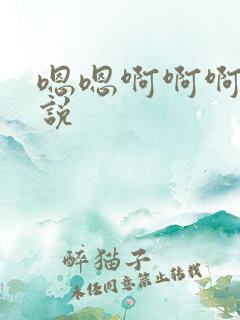 嗯嗯啊啊啊
説
醉猫子
未经同意禁止转载